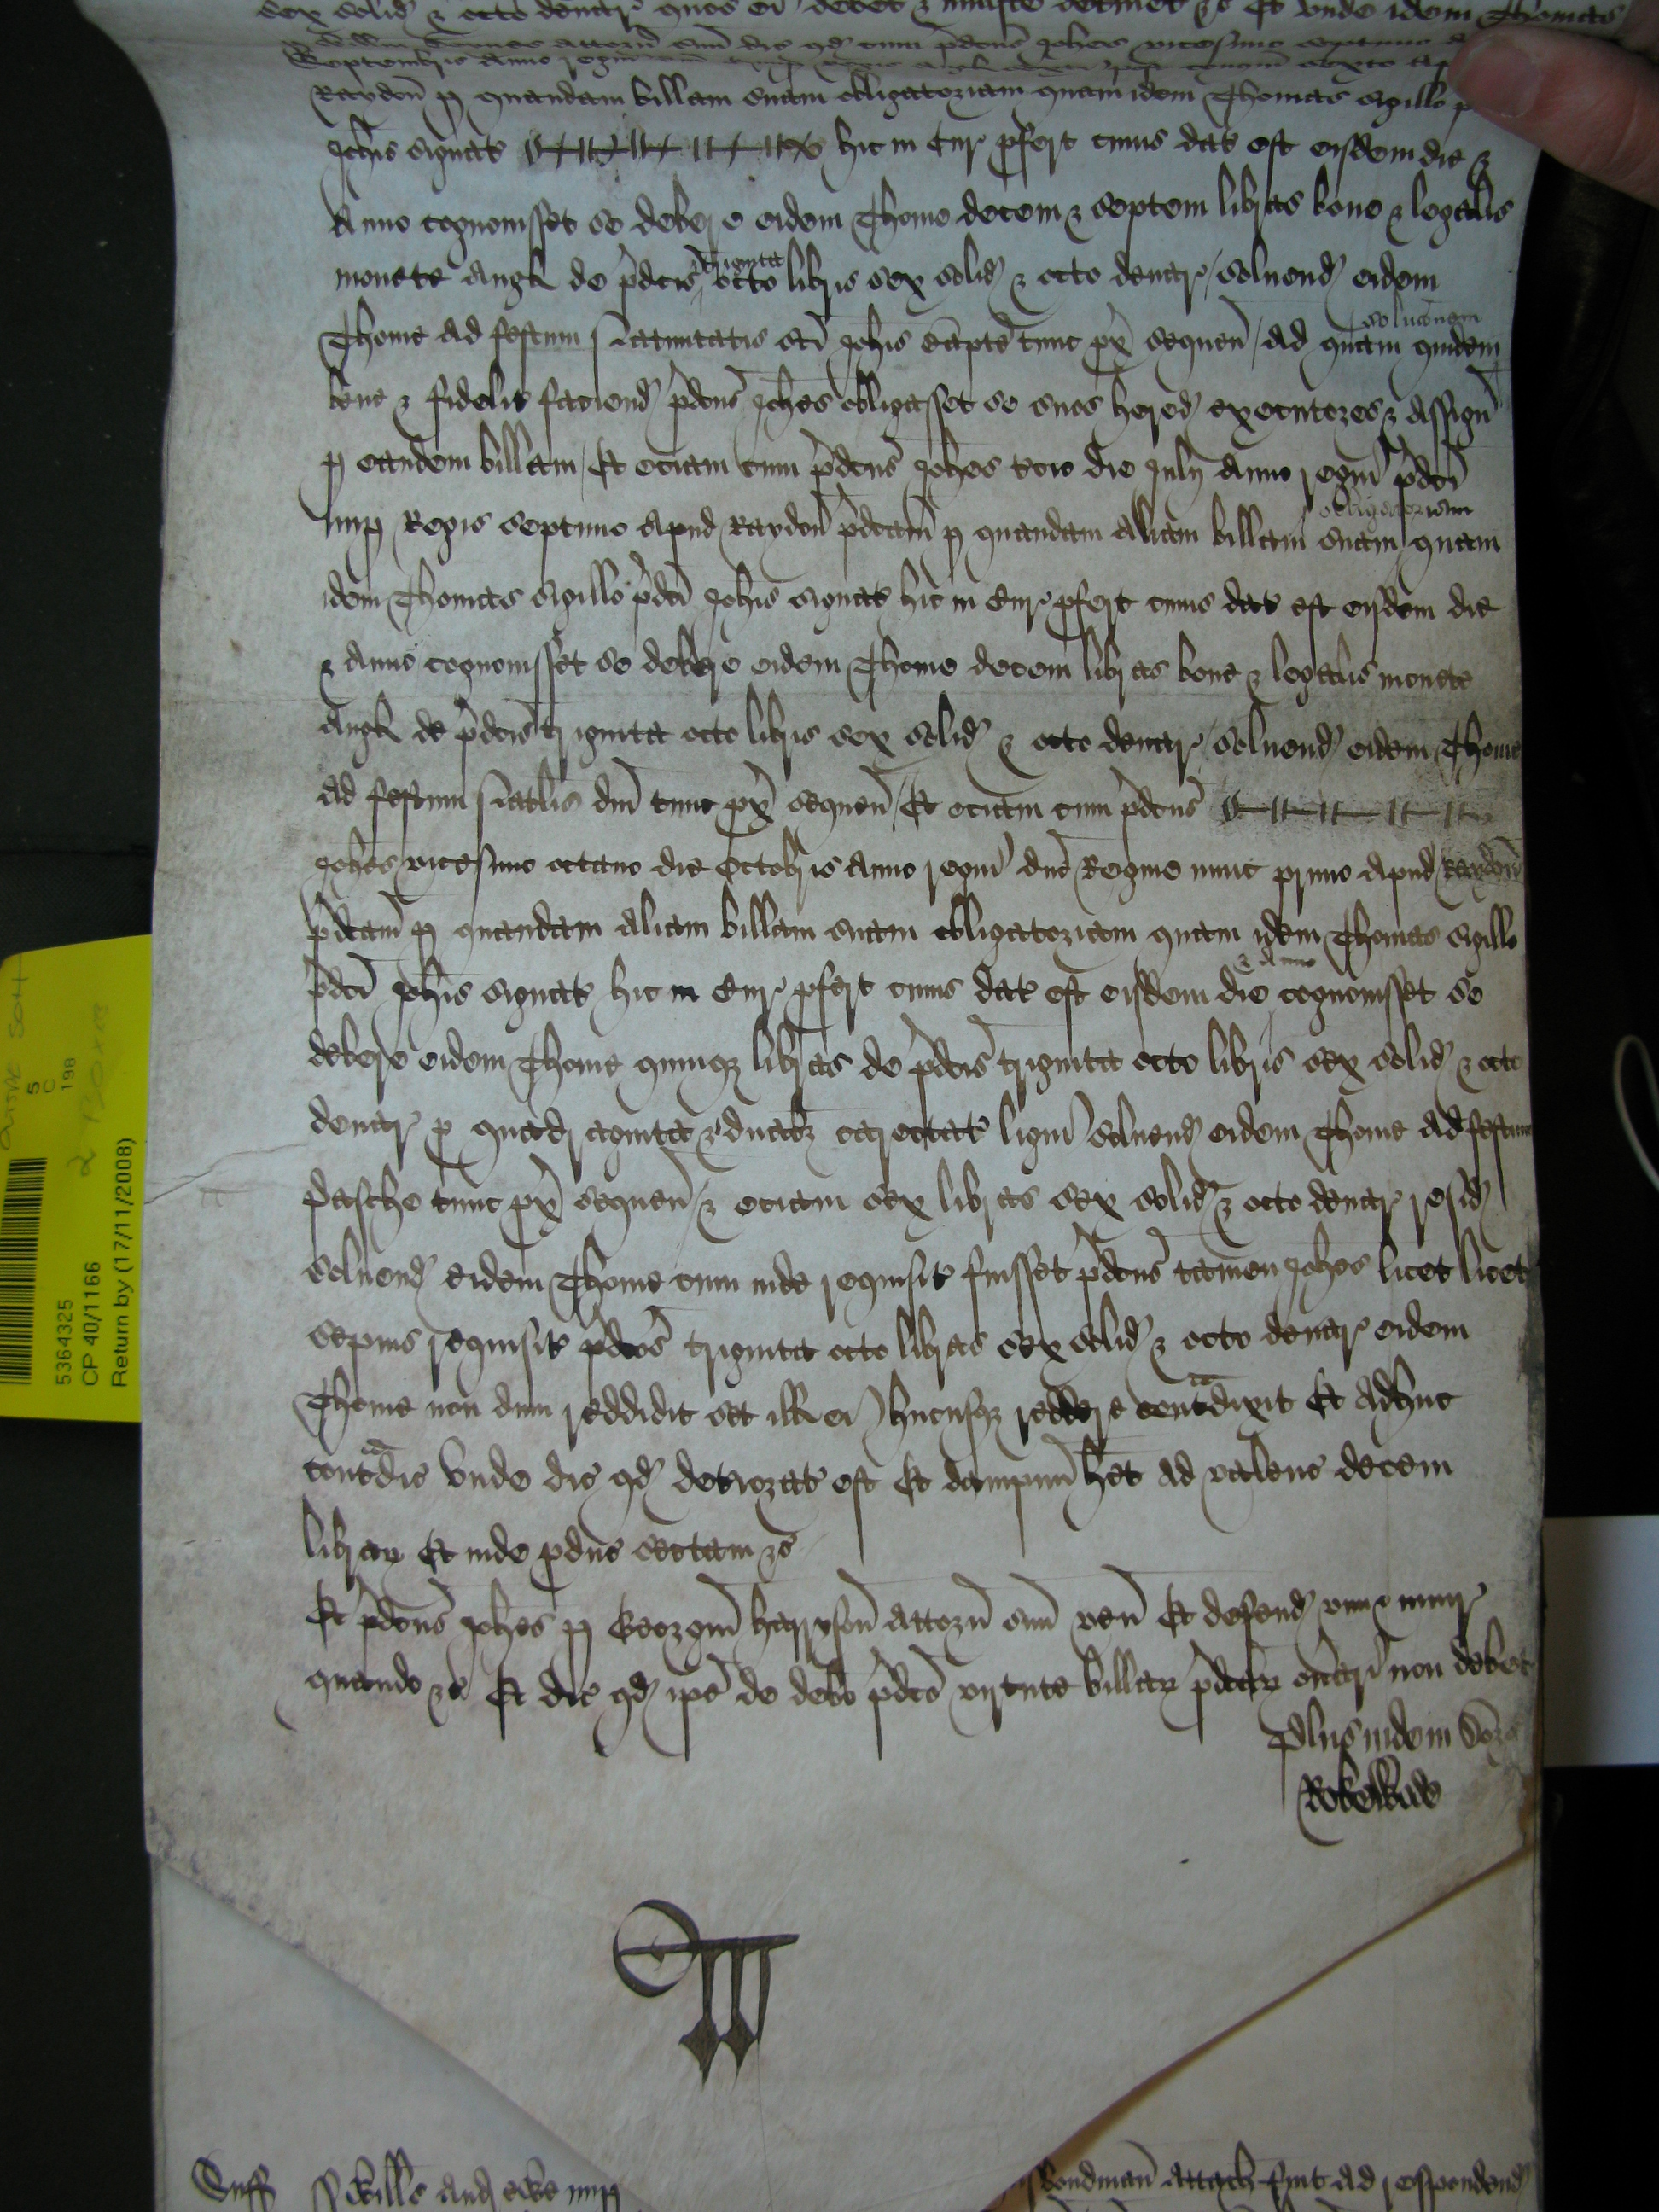 sex solid & octo denar quos ei debet & iniuste detinet &c Et unde idem Thomas
attorn suu dic qd cum pdcus Johes vicesimo septimo
Septembris anno
Raydon p quandam billam suam obligatoriam quam idem Thomas sigillo
Johis signat hic in Cur pfert cuius dat est eisdem die &
Anno cognovisset se debere eidem Thome decem & septem libras bone & legalis
monete Angl de pdcis triginta octo libris sex solid & octo denar / solvend eidem
Thome ad festum Natiuitatis sci Johis Bapte tunc px sequen / ad quam quidem solucionem
bene & fidelit faciend pdcus Johes obligasset se suos hered executores & assign
p eandem billam / Et eciam cum pdcus Johes tcio die Julii Anno regni pdci
nup Regis septimo apud Raydon pdcam p quandam aliam billam suam obligatoriam quam
idem Thomas sigillo pdci Johis signat hic in Cur pfert cuius dat est eisdem die
& anno cognovisset se debere eidem Thome decem libras bone & legalis monete
Angl de pdcis triginta octo libris sex solid & octo denar / solvend eidem Thome
ad festum Natlis dni tunc px sequen / Et eciam cum pdcus
Johes vicesimo octavo die Octobris anno regni dne Regine nunc primo apud Raydon
pdcam p quandam aliam billam suam obligatoriam quam idem Thomas sigillo
pdci Johis signat hic in Cur pfert cuius dat est eisdem die & anno cognovisset se
debere eidem Thome quinq libras de pdcis triginta octo libris sex solid & octo
denar p quadraginta & duabz carectat ligni solvend eidem Thome ad festum
Pasche tunc px sequen / & eciam sex libras sex solid & octo denar resid
solvend eidem Thome cum inde requisit fuisset pdcus tamen Johes licet licet
sepius requisit pdcas triginta octo libras sex solid & octo denar eidem
Thome non dum reddidit set ill ei hucusqz reddere contradixit Et adhuc
contradic Unde dic qd deteriorat est Et dampnu het ad valenc decem
librar Et inde pduc sectam &c
Et pdcus Johes p Georgiu Harryson attorn suu ven Et defend vim & iniur
quando &c Et dic qd ipe de debo pdco virtute billar pdcar onerari non debet
plus inde in dorso
Rokewode
53364325
CP 40/1166
Return by (17/11/2008)
Suff
Bondman attach fuit ad respondend